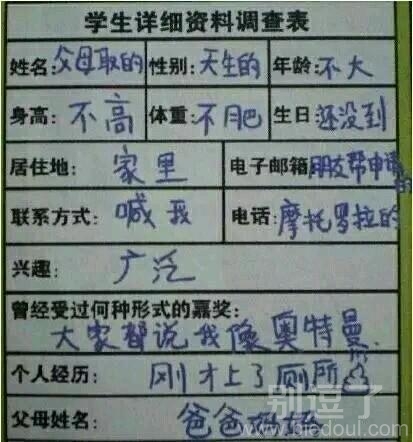 学生详细资料调查表
姓名:父母取的 性别:天生的 年龄:不大
身高:不高 体重:不肥 生日 还没到
居住地: 家里 电子邮箱 朋友帮申请的
联系方式: 喊我 电话: 摩托罗拉的
兴趣: 广泛
曾经受过何种形式的嘉奖:
大家都说我像奥特曼.
个人经历: 刚才上了厕所
父母姓名: 爸爸妈妈
别逗了
www.biedoul.com